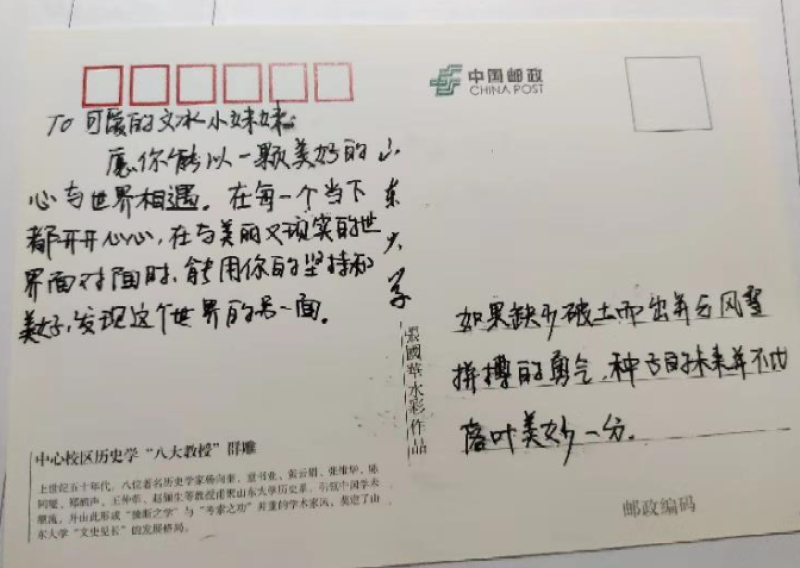 中国邮政
CHINA POST
TO 可爱的文冰小妹妹:
愿你能以一颗美好的
心与世界相遇。在每一个当下
都开开心心,在与美丽又现实的世
界面对面时,能用你的坚持和
美好,发现这个世界的另一面。
山东大学
張國華水彩作品
如果缺少破土而出并与风雪
拼搏的勇气,种子的未来并不比
落叶美妙一分。
中心校区历史学“八大教授”群雕
上世纪五十年代,八位著名历史学家杨向奎、童书业、黄云眉、张维华、陈
同燮、郑鹤声、王仲荦、赵俪生等教授重聚山东大学历史系,引领中国学术
潮流,并由此形成“独断之学”与“考索之功”并重的学术家风,奠定了山
东大学“文史见长”的发展格局。
邮政编码